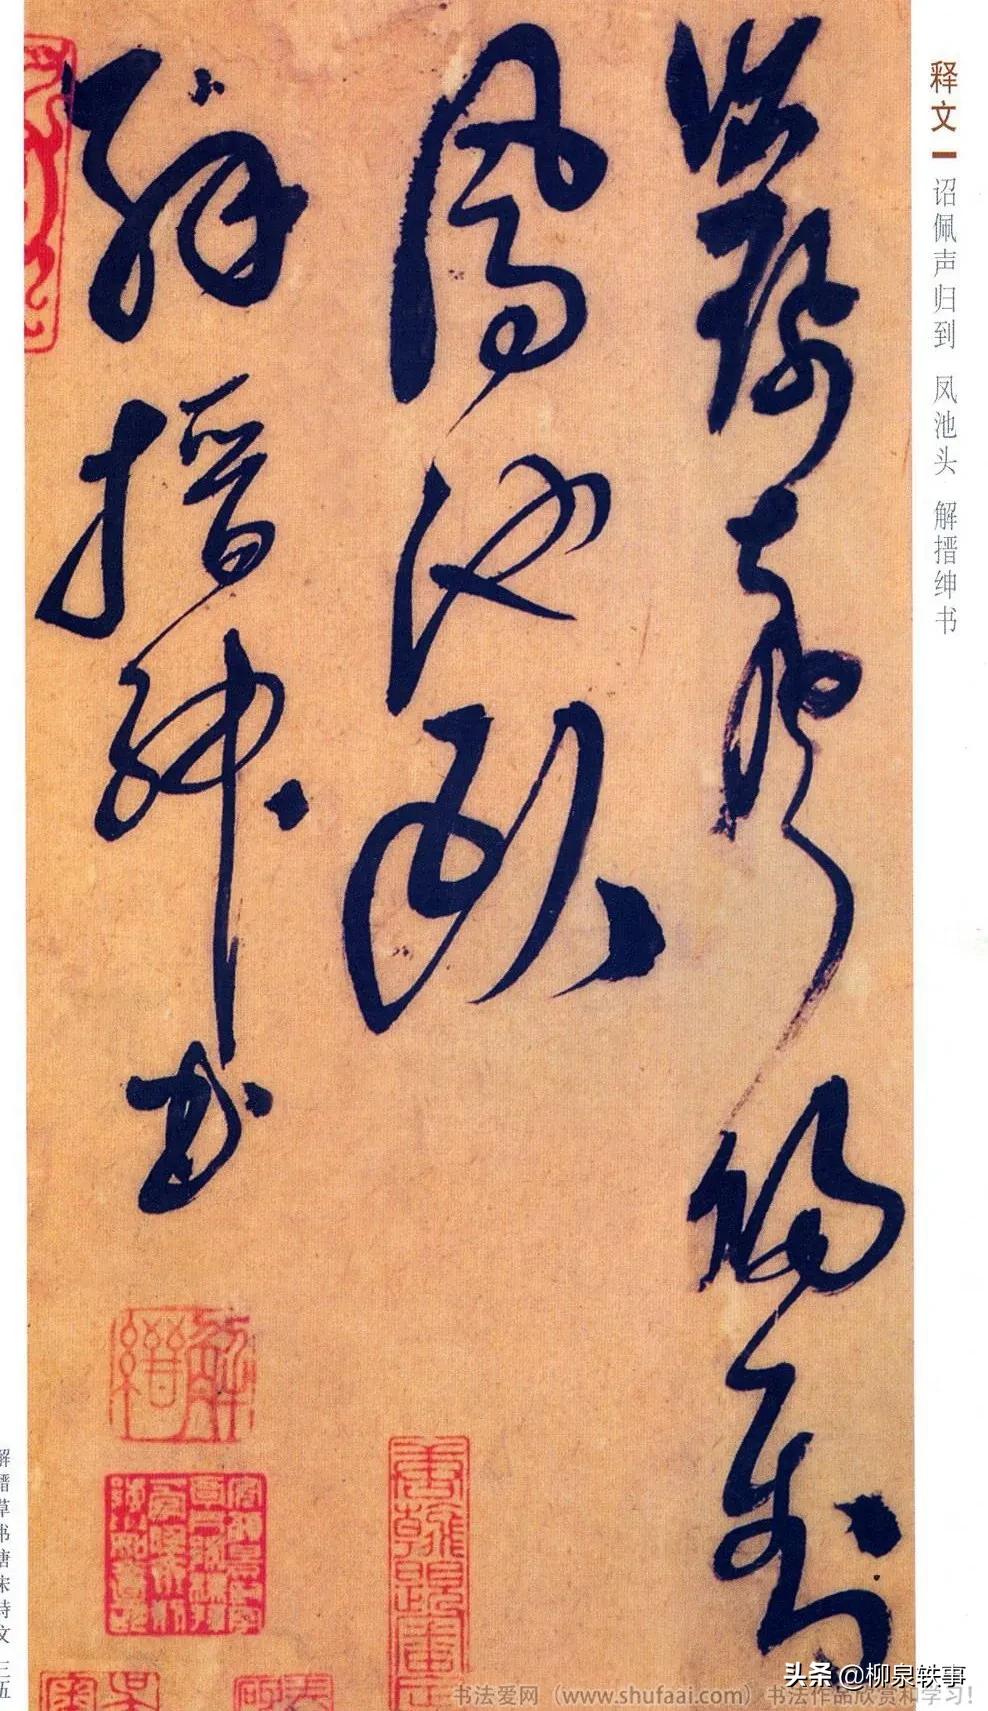 释文 诏佩声归到 凤池头 解搢绅书
詔珮聲歸到
鳳池頭
解搢紳書
解縉
解缙草书唐宋诗文 三五
头条 @柳泉轶事
书法爱网（www.shufaai.com）书法作品欣赏和学习！